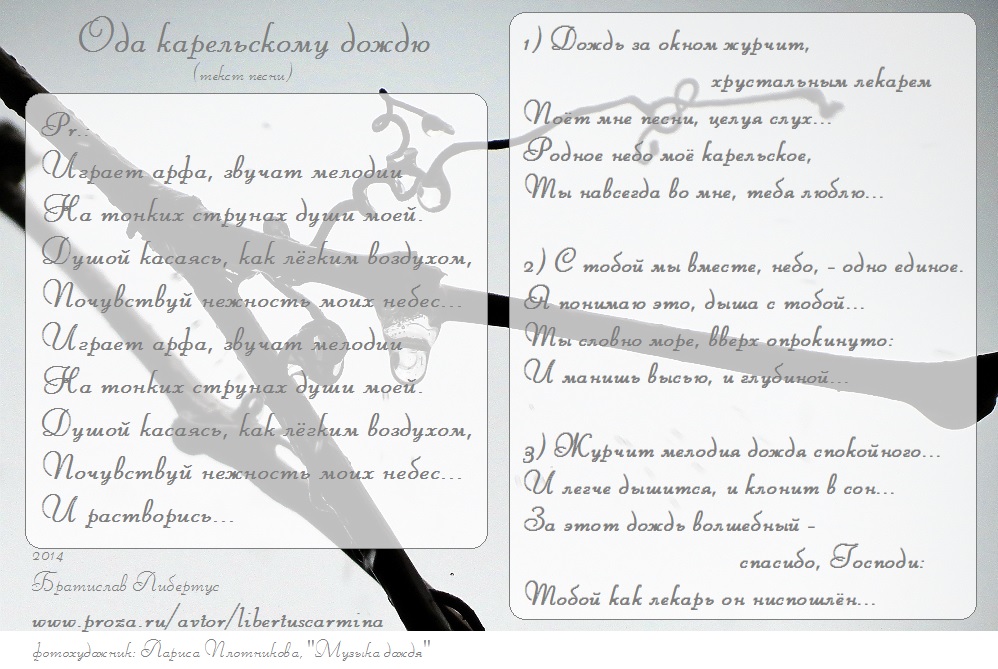 Ода карельскому дождю
(текст песни)
Pr.:
Играет арфа, звучат мелодии
На тонких струнах души моей.
Душой касаясь, как лёгким воздухом,
Почувствуй нежность моих небес...
Играет арфа, звучат мелодии
На тонких струнах души моей.
Душой касаясь, как лёгким воздухом,
Почувствуй нежность моих небес...
И растворись...
2014
Братислав Либертус
www.proza.ru/avtor/libertuscarmina
фотохудожник: Лариса Плотникова, "Музыка дождя"
1) Дождь за окном журчит,
хрустальным лекарем
Поёт мне песни, целуя слух...
Родное небо моё карельское,
Ты навсегда во мне, тебя люблю...
2) С тобой мы вместе, небо, - одно единое.
Я понимаю это, дыша с тобой...
Ты словно море, вверх опрокинуто:
И манишь высью, и глубиной...
3) Журчит мелодия дождя спокойного...
И легче дышится, и клонит в сон...
За этот дождь волшебный -
спасибо, Господи:
Тобой как лекарь он ниспошлён...